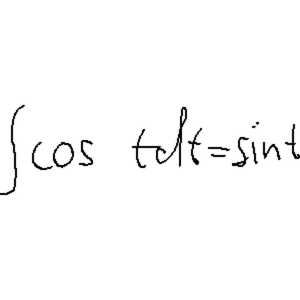 ∫cos tdt=sint